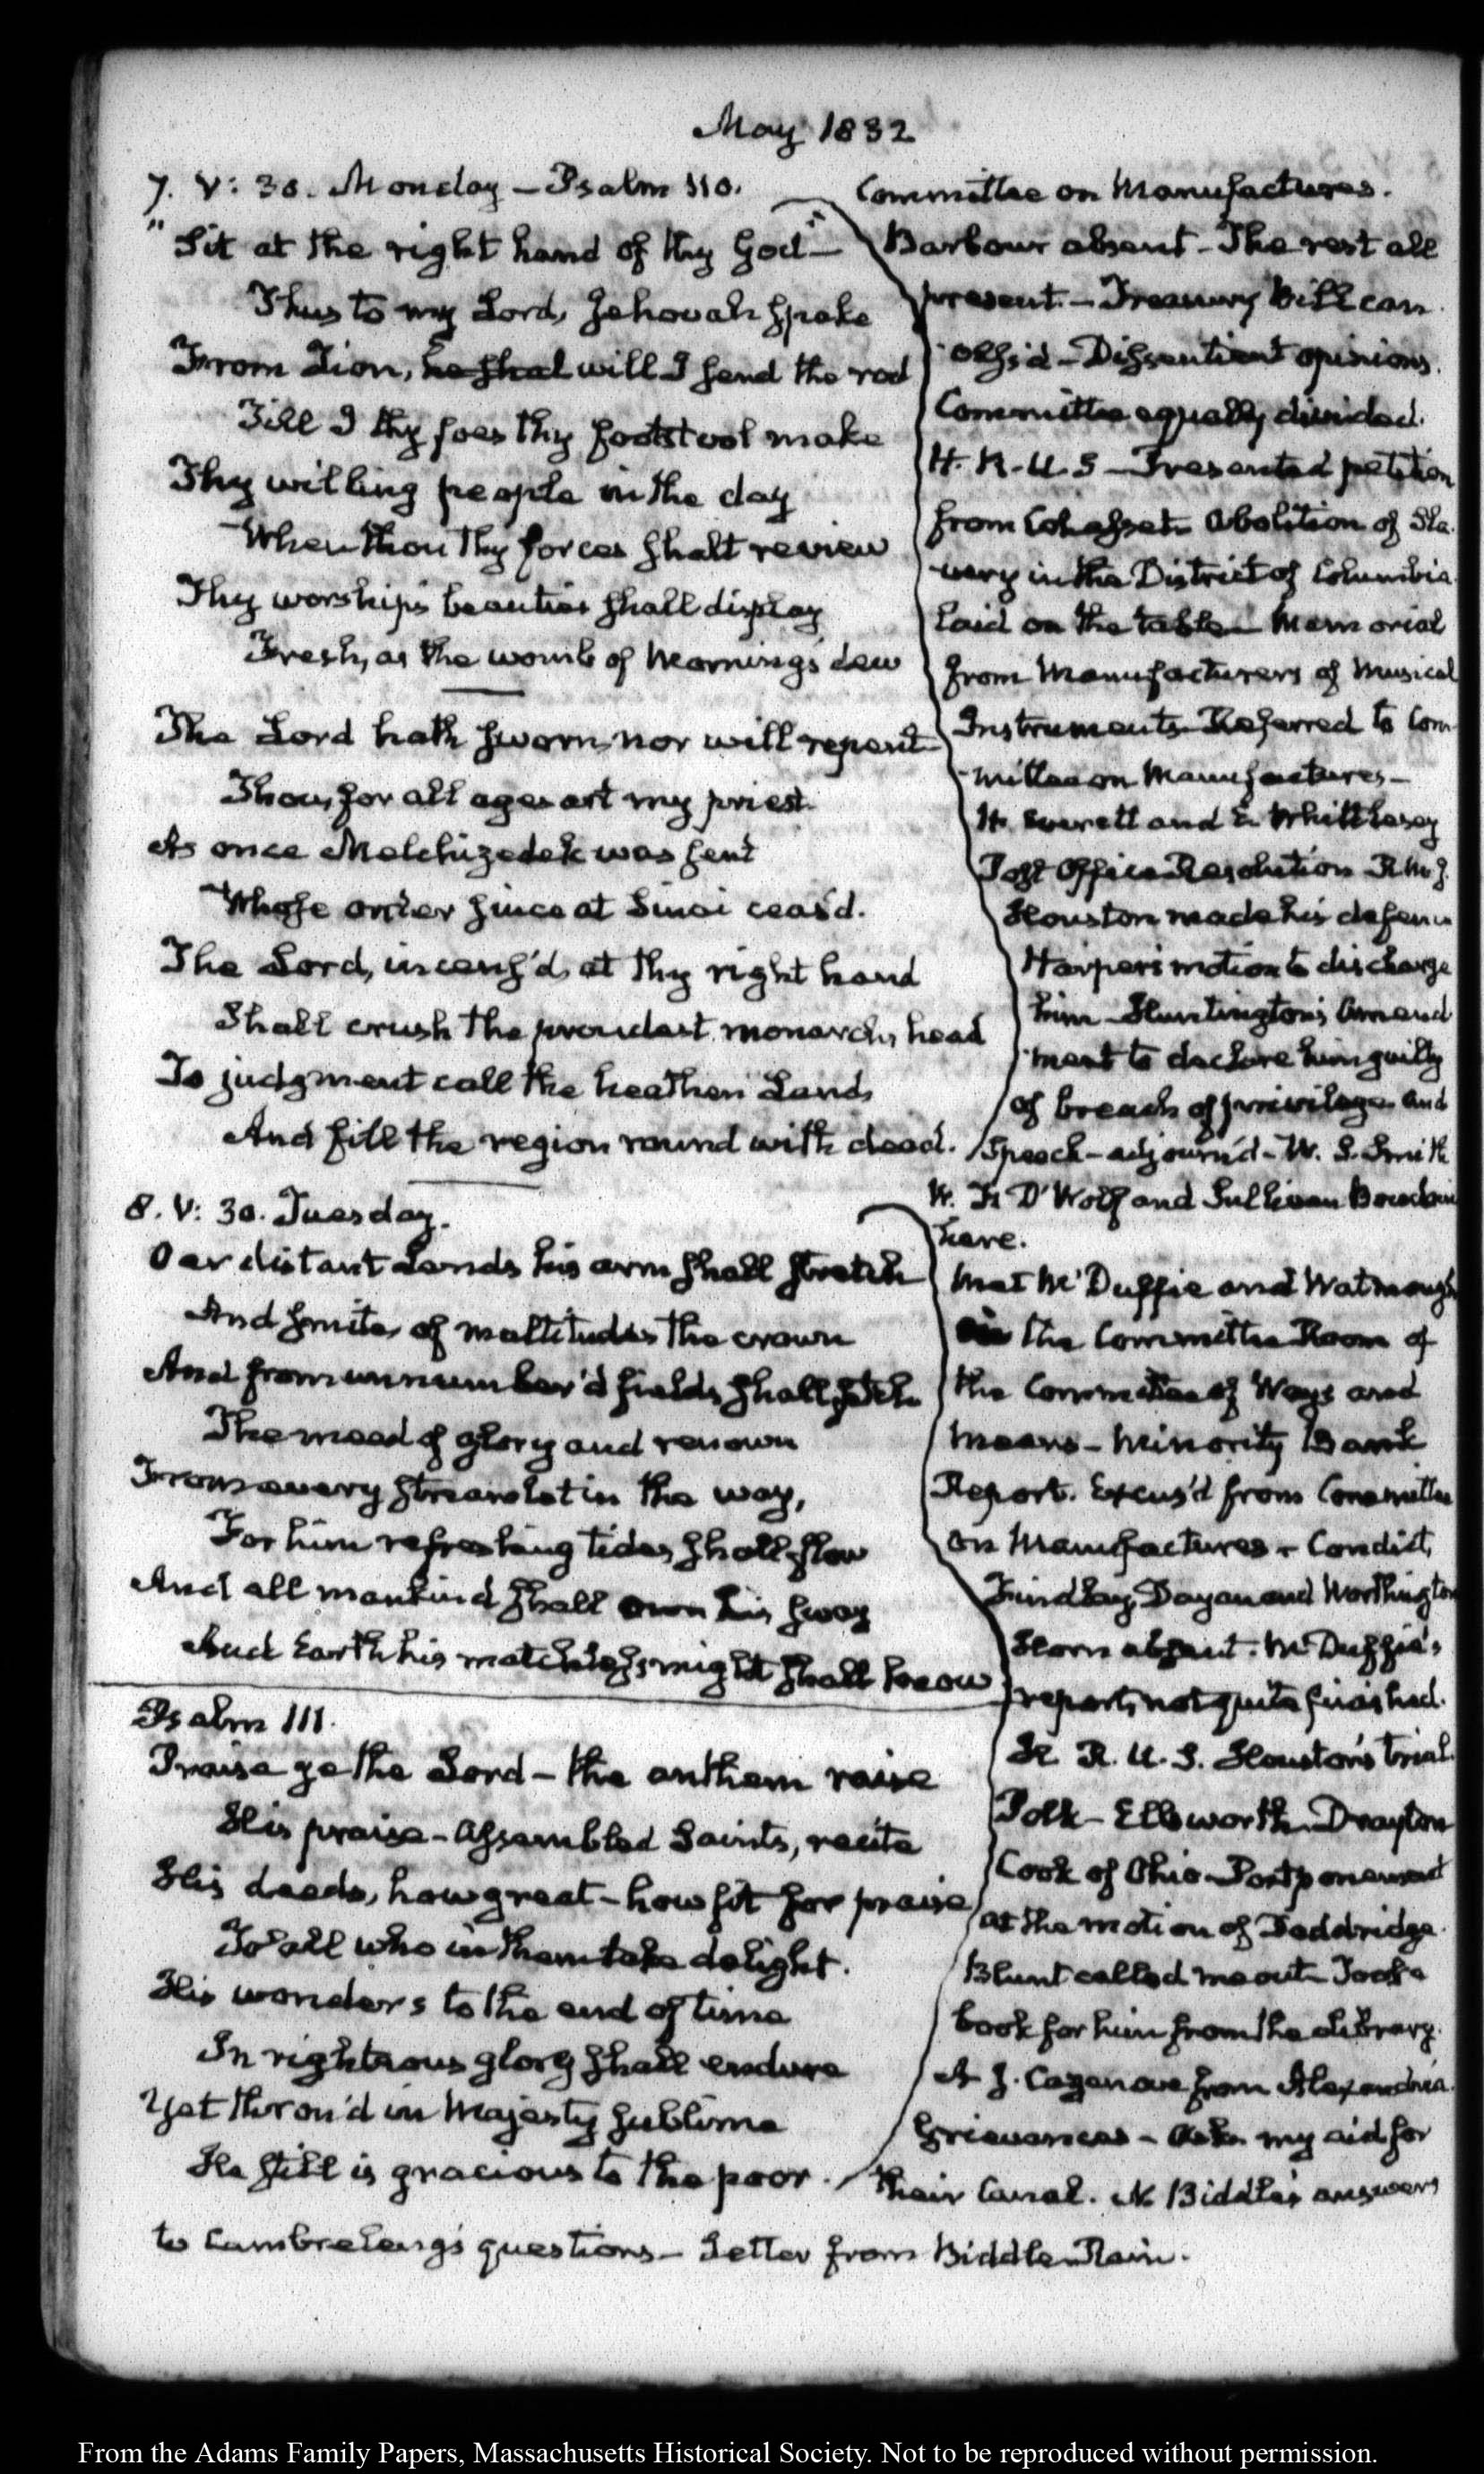 May 1832
7. V: 30. Monday – Psalm 110.
"Sit at the right hand of thy God" –
Thus to my Lord, Jehovah spake
From Zion, he shal will I send the rod
Till I thy foes thy footstool make
Thy willing people in the day
When thou thy forces shalt review
Thy worship's beauties shall display
Fresh, as the womb of Morning's dew
The Lord hath sworn, nor will repent
Thou, for all ages art my priest.
As once Melchizedek was sent
Whose order since at Sinai ceas'd.
The Lord, incens'd, at thy right hand
Shall crush the proudest monarch's head
To judgment call the heathen Lands
And fill the region round with dead.
Committee on Manufactures.
Barbour absent – The rest all
present. – Treasury Bill can
vass'd – Dissentient opinions.
Committee equally divided.
H. R. U. S – Presented petition
from Cohasset. Abolition of Sla
very in the District of Columbia
laid on the table – Memorial
from Manufacturers of Musical
Instruments. Referred to Com
mittee on Manufactures –
H. Everett and E. Whittlesey
Post Office Resolution
Houston made his defence
Harper's motion to discharge
him – Huntington's Amend
ment to declare him guilty
of breach of privilege and
Speech – adjourn'd – W. S. Smith
W. F. D'Wolf and Sullivan
here.
8. V: 30. Tuesday.
O'er distant Lands his arm shall stretch
And smite, of multitudes the crown
And from unnumber'd fields shall fetch
The meed of glory and renown
From every streamlet in the way,
For him refreshing tides shall flow
And all mankind shall own his sway
And Earth his matchless might shall know
Psalm 111.
Praise ye the Lord – the anthem raise
His praise – assembled Saints, recite
His deeds, how great – how fit for praise
To all who in them take delight.
His wonders to the end of time
In righteous glory shall endure
Yet thron'd in Majesty sublime
He still is gracious to the poor.
Met McDuffie and Watmough
in the Committee Room of
the Committee of Ways and
Means – Minority Bank
Report. Excus'd from Committee
on Manufactures – Condict,
Findlay, Dayan and Worthington
Horn absent. McDuffie's
report, not quite finished.
H. R. U. S. Houston's trial.
Polk – Ellsworth – Drayton
Cook of Ohio – Postponement
at the motion of Doddridge.
Blunt called me out – Took a
book for him from the Library.
A. J. Cazenove from Alexandria.
Grievances – Asks my aid for
their Canal. N. Biddle's answers
to Cambreleng's questions – Letter from Biddle – Rain.
From the Adams Family Papers, Massachusetts Historical Society. Not to be reproduced without permission.